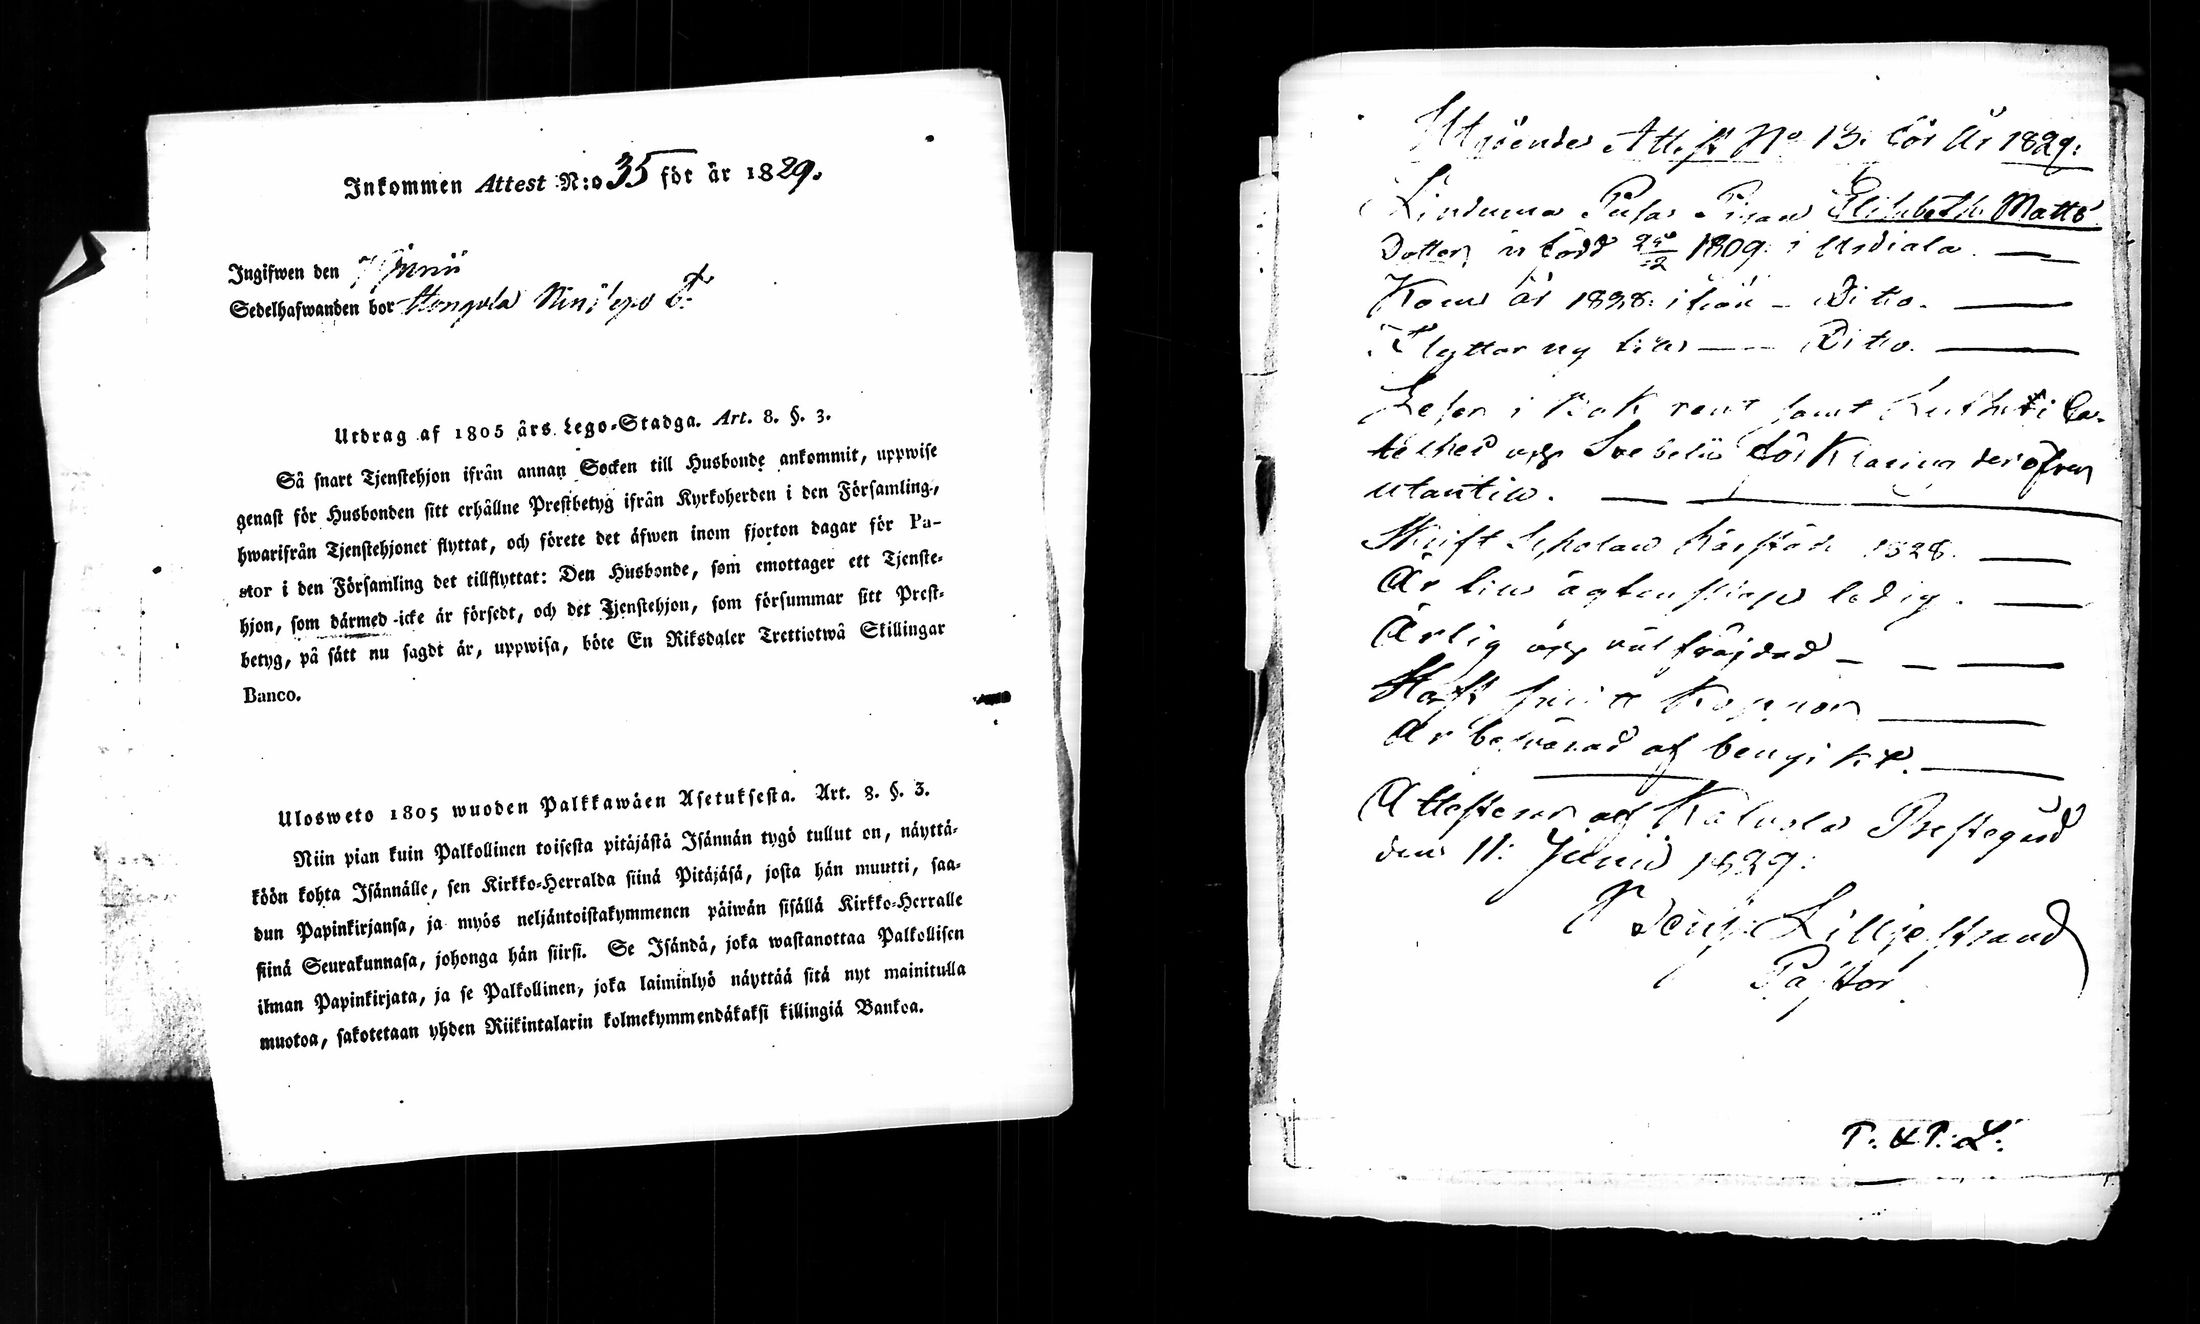 Inkommen Attest N:o 35 för år 1829.
Ingifwen den 7 Junii
Sedelhafwanden bor
Utdrag af 1805 års Lego-Stadga. Art. 8. §. 3.
Så snart Tjenstehjon ifrån annan Socken till Husbonde ankommit, uppwise
genast för Husbonden sitt erhållne Prestbetyg ifrån Kyrkoherden i den Församling,
hwarifrån Tjenstehjonet flyttat, och förete det äfwen inom fjorton dagar för Pa-
stor i den Församling det tillflyttat: Den Husbonde, som emottager ett Tjenste-
hjon, som därmed icke är försedt, och det Tjenstehjon, som försummar sitt Prest-
betyg, på sätt nu sagdt är, uppwisa, böte En Riksdaler Trettiotwå Skillingar
Banco.
Ulosweto 1805 wuoden Palkkawäen Asetuksesta. Art. 8. §. 3.
Niin pian kuin Palkollinen toisesta pitäjästä Isännän tygö tullut on, näyttä-
köön kohta Isännälle, sen Kirkko-Herralda siinä Pitäjäsä, josta hän muutti, saa-
dun Papinkirjansa, ja myös neljäntoistakymmenen päiwän sisällä Kirkko-Herralle
siinä Seurakunnasa, johonga hän siirsi. Se Isändä, joka wastanottaa Palkollisen
ilman Papinkirjata, ja se Palkollinen, joka laiminlyö näyttää sitä nyt mainitulla
muotoa, sakotetaan yhden Riikintalarin kolmekymmendäkaksi killingiä Bankoa.
Utgående Attest No 13. för År 1829.
Pigan Elisabeth Matts
Dotter, är född 1809. i Urdiala.
Kom år 1828. ifrån - Ditto.
Flyttar ny till Ditto.
Läser i Bok rent samt Lutheri Ca-
teches och Svebelii Förklaring deröfver
utantill.
Skrift Scholan 1828.
Är till ägtenskap ledig.
Ärlig och väl fräjdad
Haft Koppor
Är af
Attesteras af Kalvola Prestegård
den 11. Junii 1829.
Lilljestrand
Pastor.